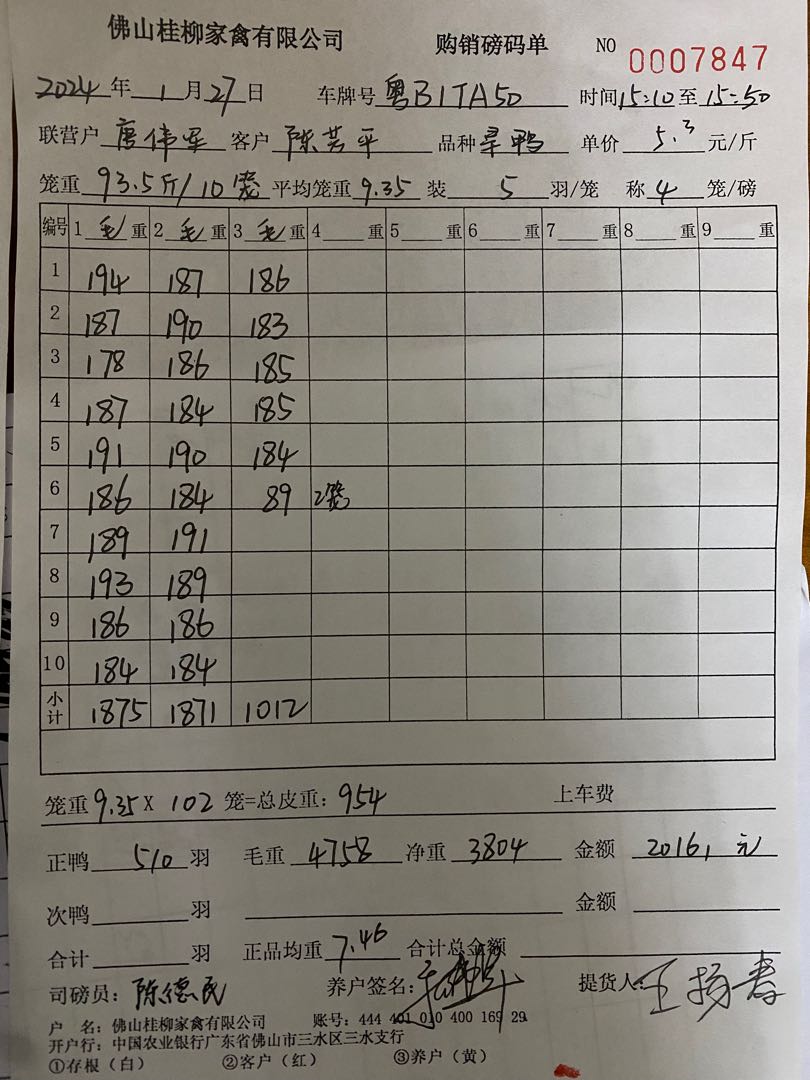 佛山桂柳家禽有限公司 购销磅码单 NO 0007847
2024年 1月27日 车牌号 粤B1TA50 时间15:10至15:50
联营户 唐伟军 客户 陈芸平 品种 旱鸭 单价 5.3 元/斤
笼重 93.5斤/10笼 平均笼重 9.35 装 5 羽/笼 称 4 笼/磅
编号 1 毛 重 2 毛 重 3 毛 重 4 重 5 重 6 重 7 重 8 重 9 重
1 194 187 186
2 187 190 183
3 178 186 185
4 187 184 185
5 191 190 184
6 186 184 89 2笼
7 189 191
8 193 189
9 186 186
10 184 184
小计 1875 1871 1012
笼重 9.35 X 102 笼=总皮重：954 上车费
正鸭 510 羽 毛重 4758 净重 3804 金额 20161 元
次鸭 羽 金额
合计 羽 正品均重 7.46 合计总金额
司磅员：陈德民 养户签名： 提货人：王扬春
户 名：佛山桂柳家禽有限公司 账号：444 401 010 400 169 29
开户行：中国农业银行广东省佛山市三水区三水支行
①存根（白） ②客户（红） ③养户（黄）